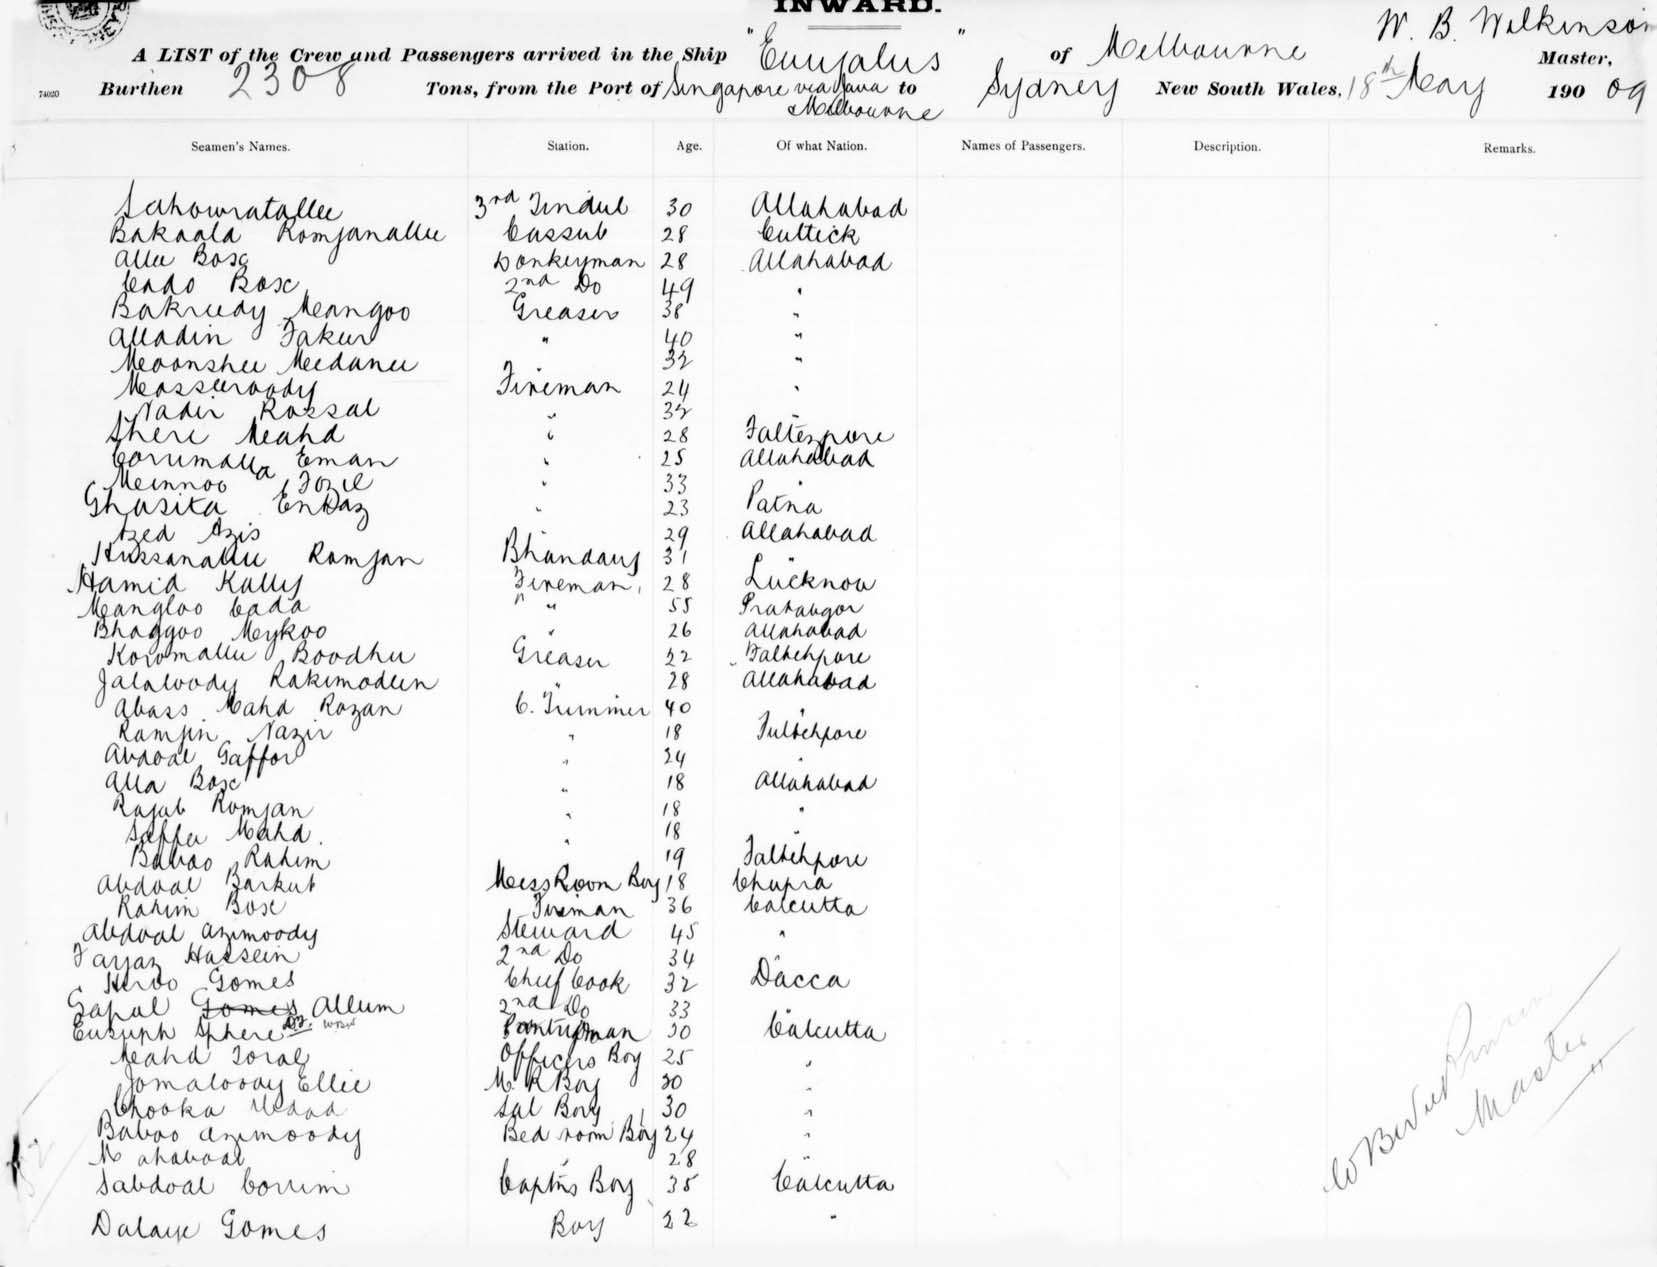 INWARD.
W. B. Wilkinson
A LIST of the Crew and Passengers arrived in the Ship "Euryalus" of Melbourne Master,
74020 Burthen 2308 Tons, from the Port of Singapore via Java & Melbourne to Sydney New South Wales, 18th May 190 09
Seamen's Names. Station. Age. Of what Nation. Names of Passengers. Description. Remarks.
Sahowratallee 3rd Tindul 30 Allahabad
Bakaala Romjanallee Cassub 28 Cuttick
Allee Bosc Donkeyman 28 Allahabad
Cado Box 2nd Do 49 "
Bakreedy Meangoo Greaser 38 "
Alladin Fakur " 40 "
Moonshee Meedanee " 32 "
Mosseeroody Fireman 24 "
Nadir Rossal " 32 "
Sheri Meahd " 28 Faltezpore
Corrimalla Eman " 25 Allahabad
Meinnoo Fozil " 33 "
Ghasita Endaz " 23 Patna
Azed Azis 29 Allahabad
Hussanallee Romjan Bhandary 31 "
Hamid Kally Fireman 28 Lucknow
Meangloo Cada " 55
Bhaggoo Meykoo " 26 Allahabad
Koromallee Boodhu Greaser 22 Faltehpore
Jalaloody Rakimodeen " 28 Allahabad
Abass Mahd Rozan C. Trimmer 40 "
Romjin Nazir " 18 Fultehpore
Abdoal Gaffor " 24 "
Alla Box " 18 Allahabad
Rajab Romjan " 18 "
Saffer Mahd. " 18 "
Baboo Rahim " 19 Faltehpore
Abdoal Barkut Mess Room Boy 18 Chupra
Rahim Box Fireman 36 Calcutta
Abdoal Azimoody Steward 45 "
Fayaz Hossein 2nd Do 34 "
Heroo Gomes Chief Cook 32 Dacca
Gapal Gomes Allum 2nd Do 33
Eusuph Sphere Pantryman 30 Calcutta
Mahd Toral Officers Boy 25 "
Jomaloody Ellie M. R Boy 30 "
Chooka Sal Boy 30 "
Baboo Azimoody Bed room Boy 24 "
Mahaboal " 28 "
Sabdoal Corrim Captns Boy 35 Calcutta
Dalaye Gomes Boy 22 "
Master